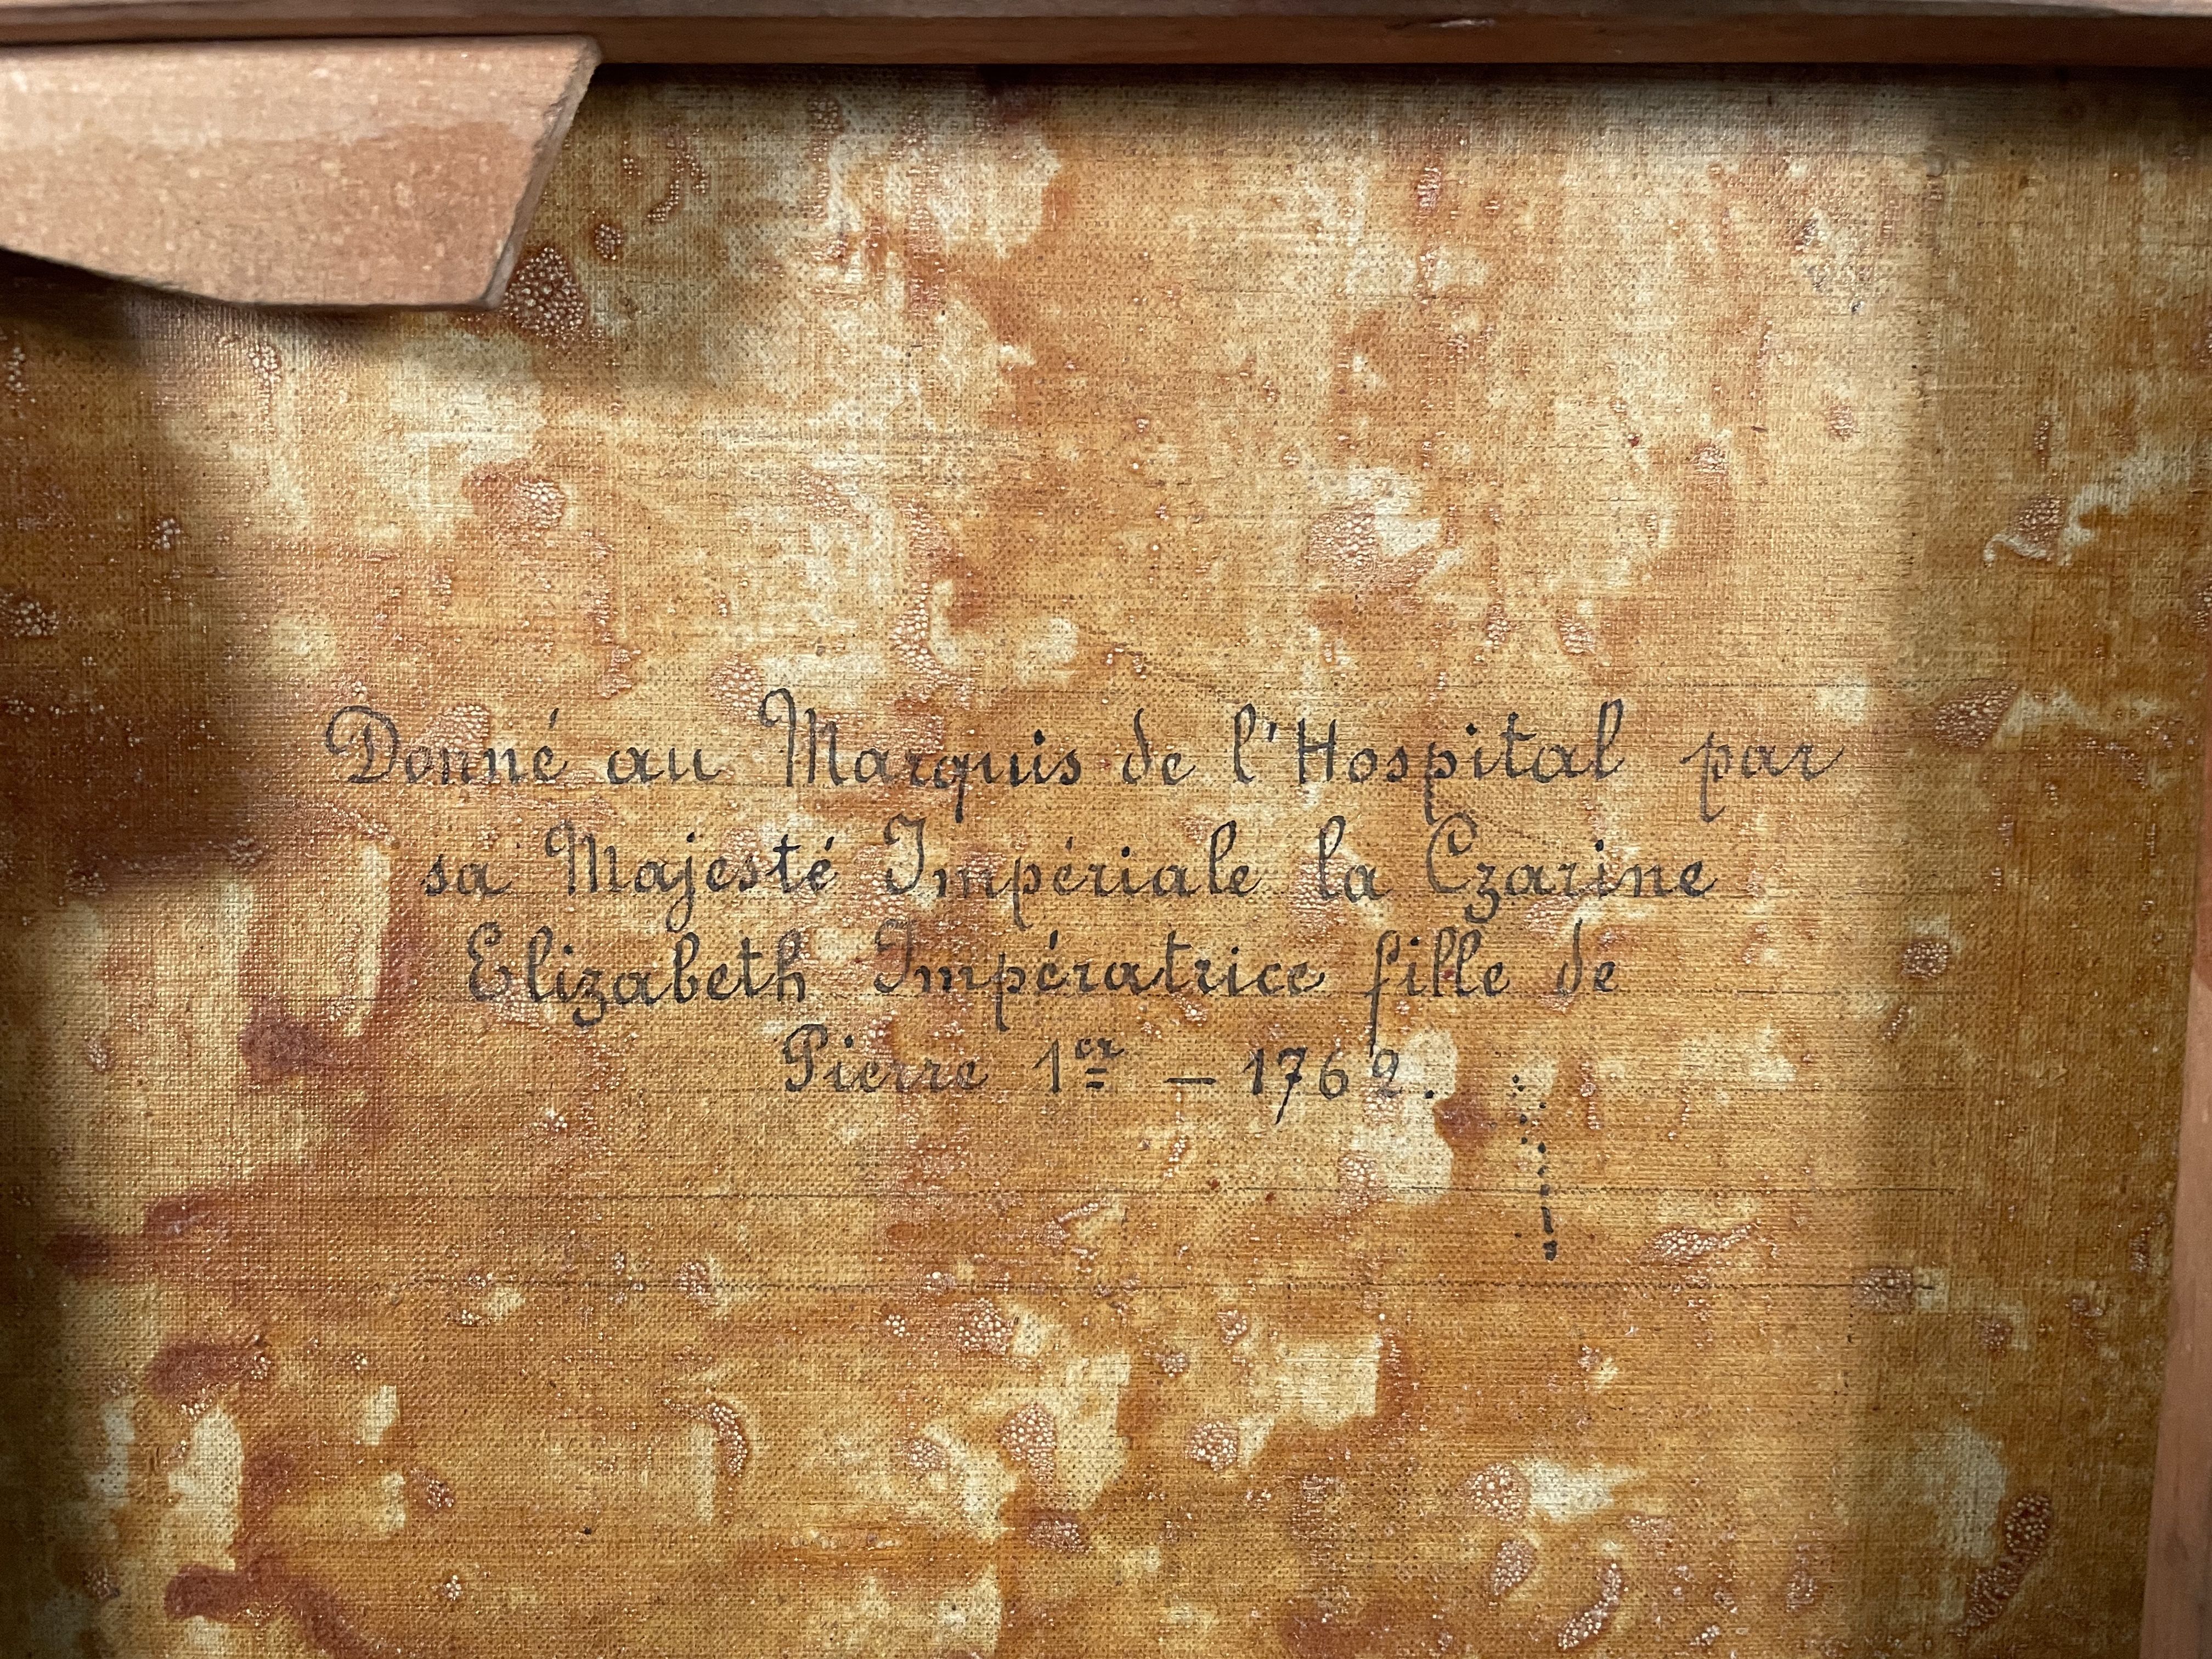 Donné au Marquis de l'Hospital par
sa Majesté Impériale la Czarine
Elizabeth Impératrice fille de
Pierre 1er — 1762.